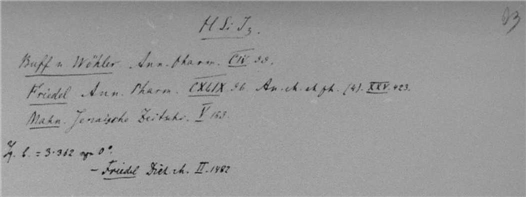 93
H Si J3.
Buff u. Wöhler. Ann. Pharm. CIV. 99.
Friedel Ann. Pharm. CXLIX. 96. An. ch. et ph. (4). XXV. 423.
Mahn. Jenaische Zeitschr. V 163.
Sg. l. = 3.362 aq 0°.
- Friedel Dict. ch. II. 1482